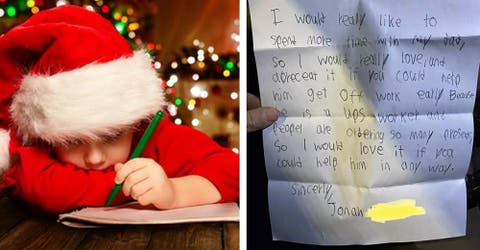 I would really like to
spend more time with my dad,
so I would really love, and
aprececat it if you could help
him get off work eally Because
he is a ups worker and
people are ordering so many presents
So I would love it if you
could help him in any way.
Sincerly,
Jonah